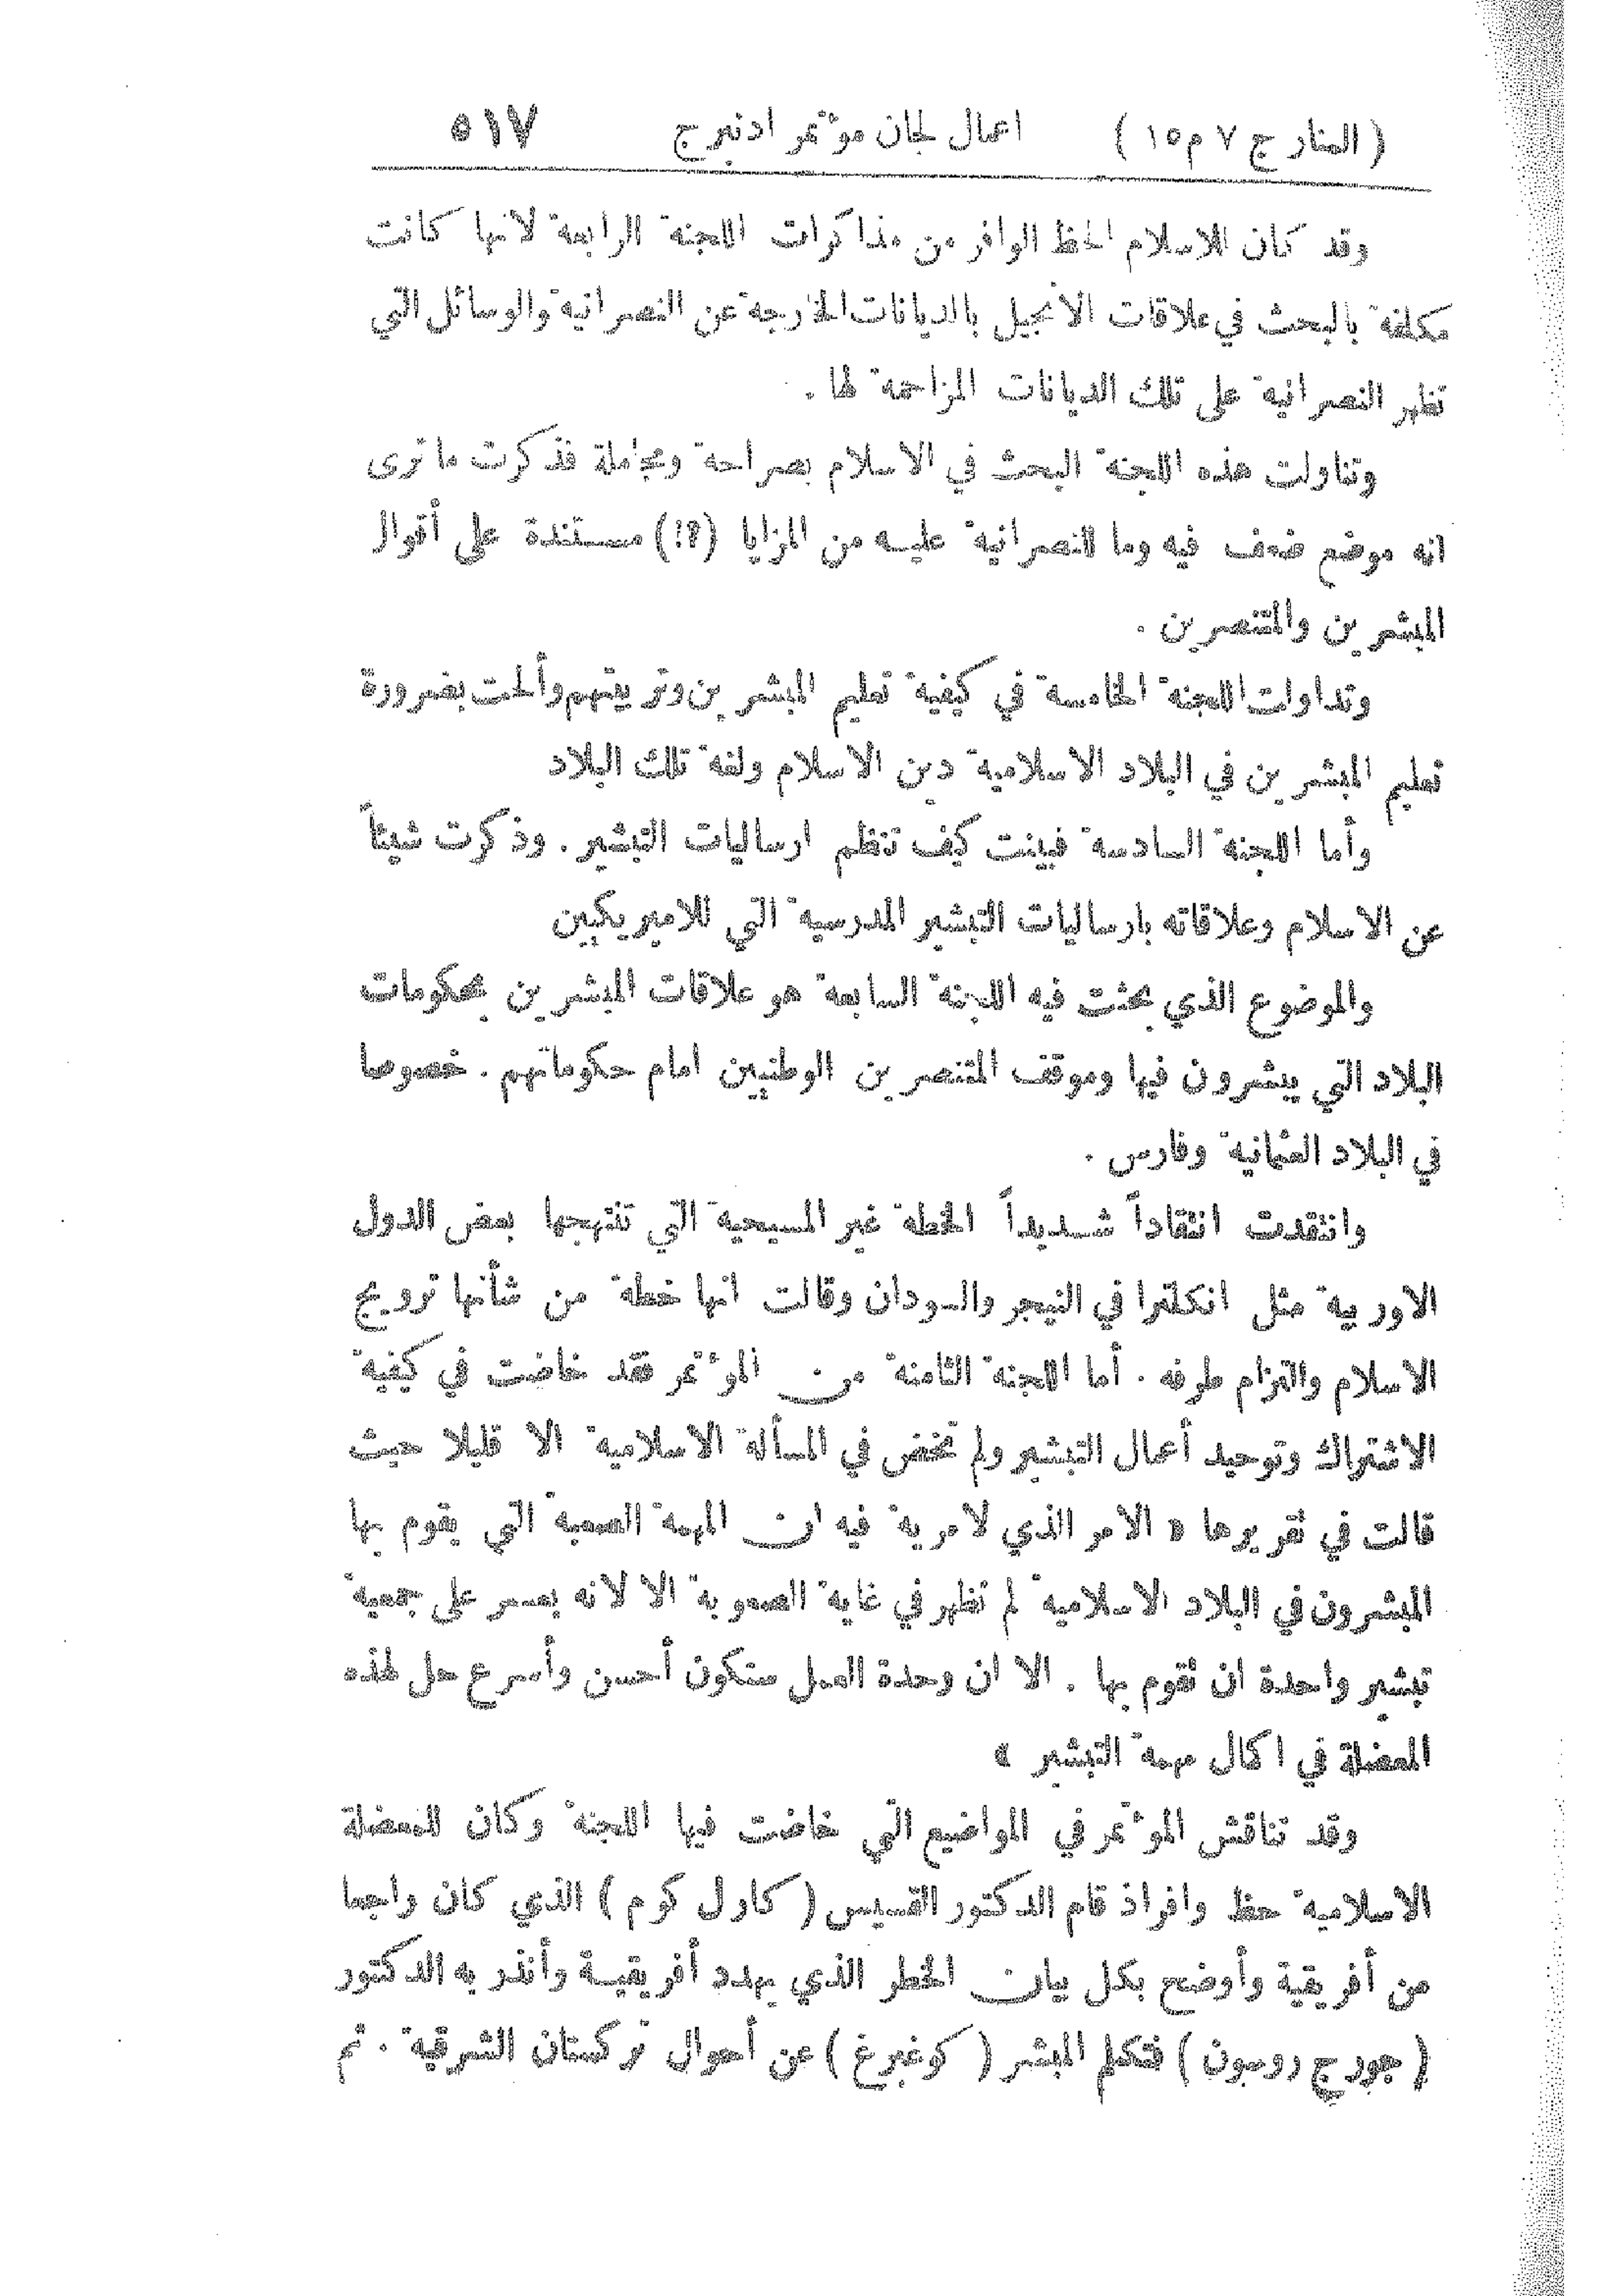 ( المنار ج ٧ م ١٥ ) اعمال لجان مؤتمر ادنبرج ٥١٧
وقد كان للاسلام الحظ الوافر من مذاكرات اللجنة الرابعة لانها كانت
مكلفة بالبحث في علاقات الانجيل بالديانات الخارجة عن النصرانية والوسائل التي
تظهر النصرانية على تلك الديانات المزاحمة لها .
وتناولت هذه اللجنة البحث في الاسلام بصراحة ومجاملة فذكرت ما ترى
انه موضع ضعف فيه وما للنصرانية عليه من المزايا (؟!) مستندة على أقوال
المبشرين والمتنصرين .
وتداولت اللجنة الخامسة في كيفية تعليم المبشرين وتربيتهم وألحت بضرورة
تعليم المبشرين في البلاد الاسلامية دين الاسلام ولغة تلك البلاد
وأما اللجنة السادسة فبينت كيف تنظم ارساليات التبشير . وذكرت شيئاً
عن الاسلام وعلاقاته بارساليات التبشير المدرسية التي للاميريكيين
والموضوع الذي بحثت فيه اللجنة السابعة هو علاقات المبشرين بحكومات
البلاد التي يبشرون فيها وموقف المتنصرين الوطنيين امام حكوماتهم . خصوصا
في البلاد العثمانية وفارس .
وانتقدت انتقاداً شديداً الخطة غير المسيحية التي تنتهجها بعض الدول
الاوربية مثل انكلترا في النيجر والسودان وقالت انها خطة من شأنها ترويج
الاسلام والتزام طرفه . أما اللجنة الثامنة من المؤتمر فقد خاضت في كيفية
الاشتراك وتوحيد أعمال التبشير ولم تخض في المسألة الاسلامية الا قليلا حيث
قالت في تقريرها « الامر الذي لا مرية فيه ان المهمة الصعبة التي يقوم بها
المبشرون في البلاد الاسلامية لم تظهر في غاية الصعوبة الا لانه يعسر على جمعية
تبشير واحدة ان تقوم بها . الا ان وحدة العمل ستكون أحسن وأسرع حل لهذه
المعضلة في اكمال مهمة التبشير »
وقد تناقش المؤتمر في المواضيع التي خاضت فيها اللجنة وكان للمعضلة
الاسلامية حظ وافر اذ قام الدكتور القسيس ( كارل كوم ) الذي كان راجعا
من أفريقية وأوضح بكل بيان الخطر الذي يهدد أفريقية وأنذر به الدكتور
( جورج روسون ) فتكلم المبشر ( كوغبرغ ) عن أحوال تركستان الشرقية . ثم